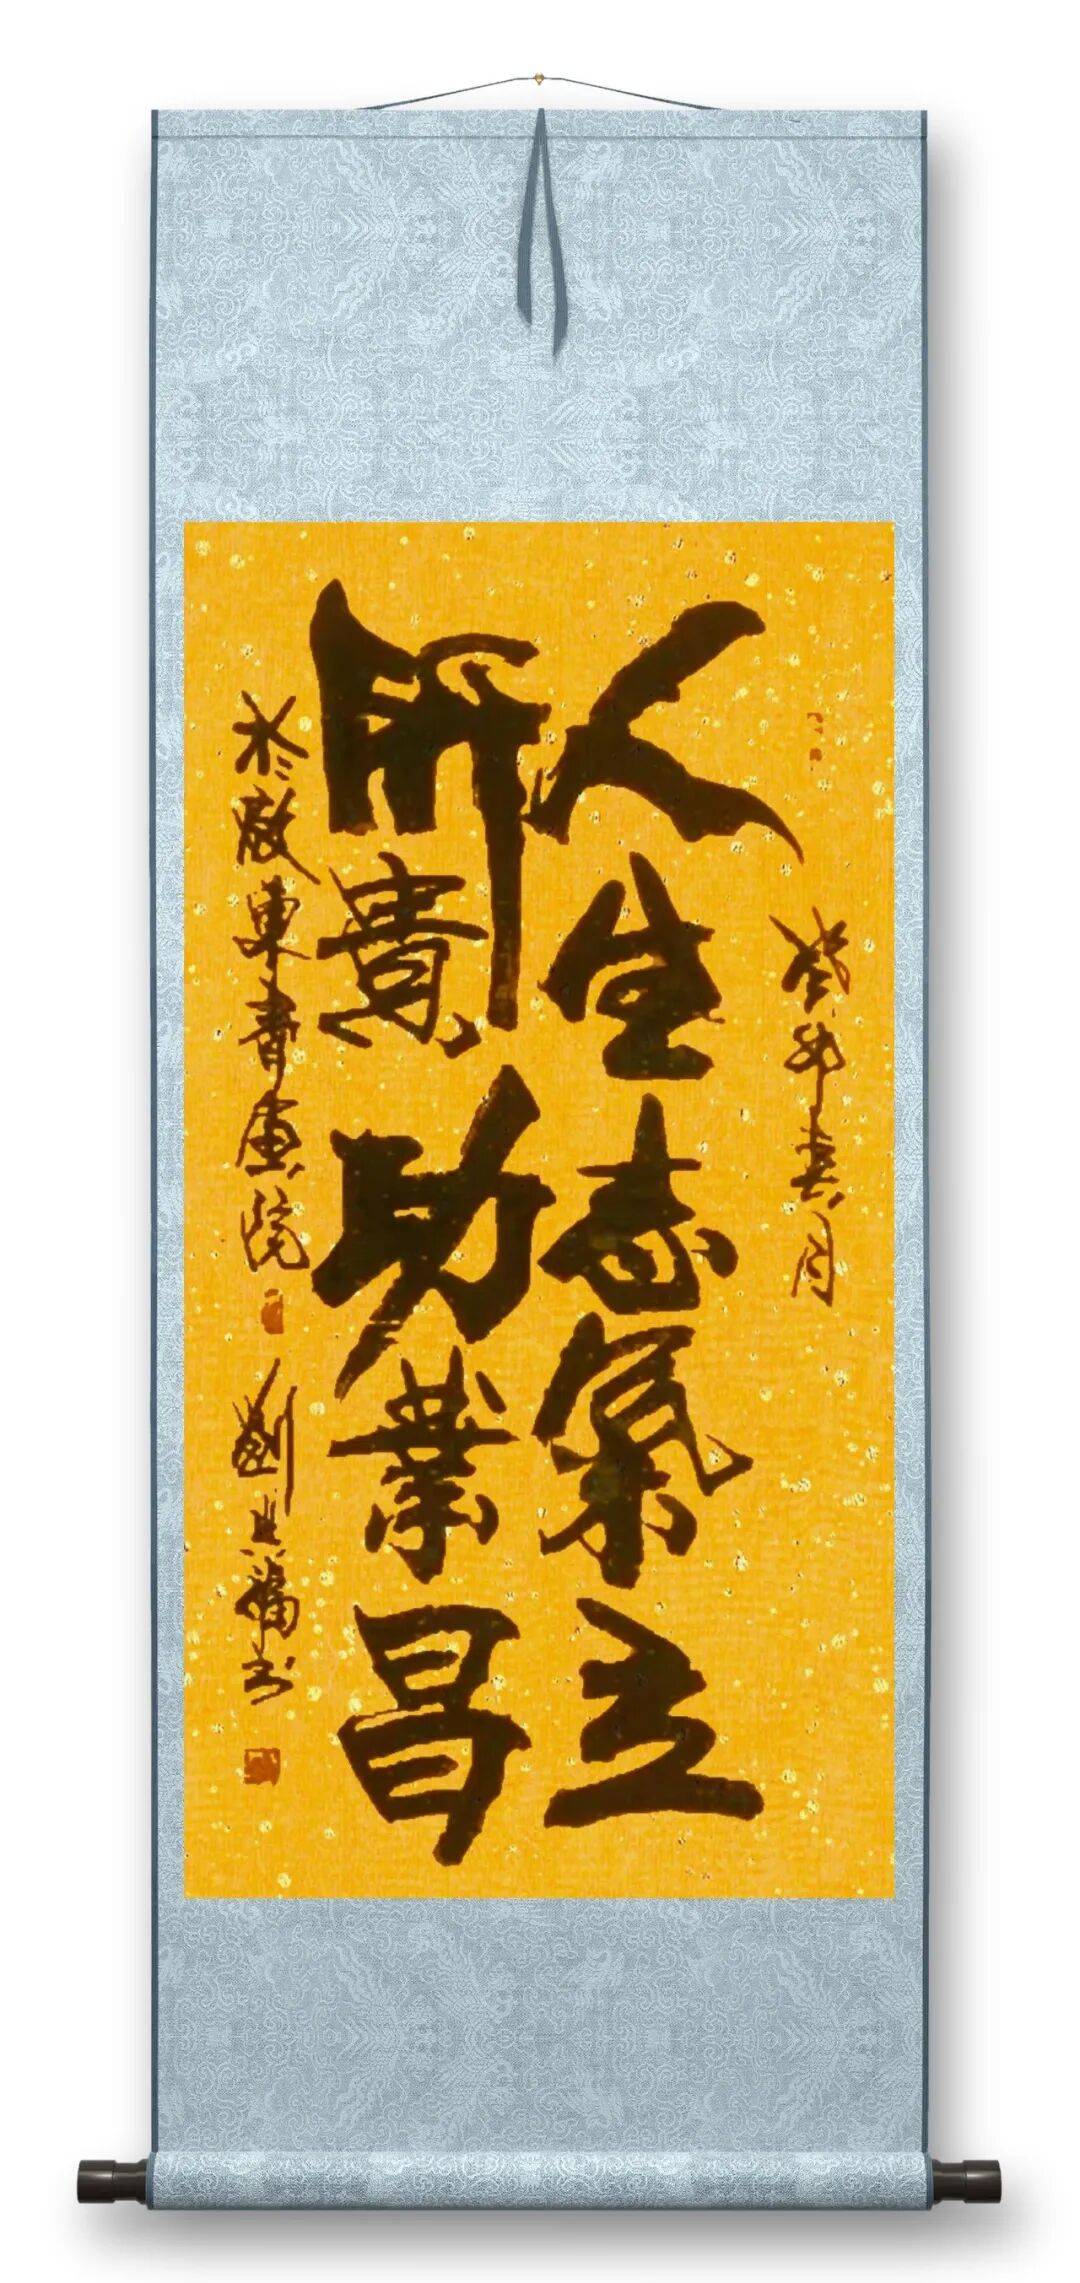 癸卯春月
人生志氣立
所貴功業昌
於啟東書画院
劉興福书